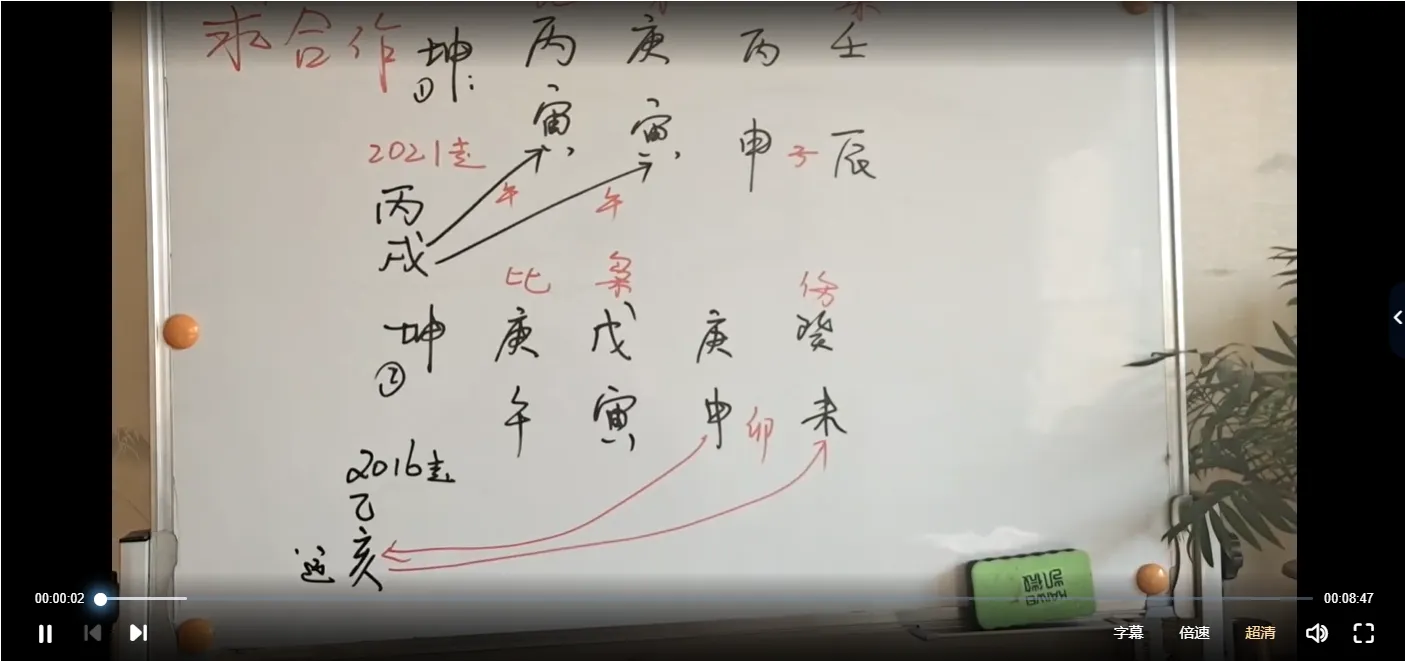 求合作 坤: 丙 庚 丙 壬
①
寅, 寅, 申 子 辰
2021走
丙 午 午
戌
比 枭 伤
坤 庚 戊 庚 癸
②
午 寅, 申 卯 未
2016走
乙
运 亥
00:00:02
00:08:47
字幕 倍速 超清